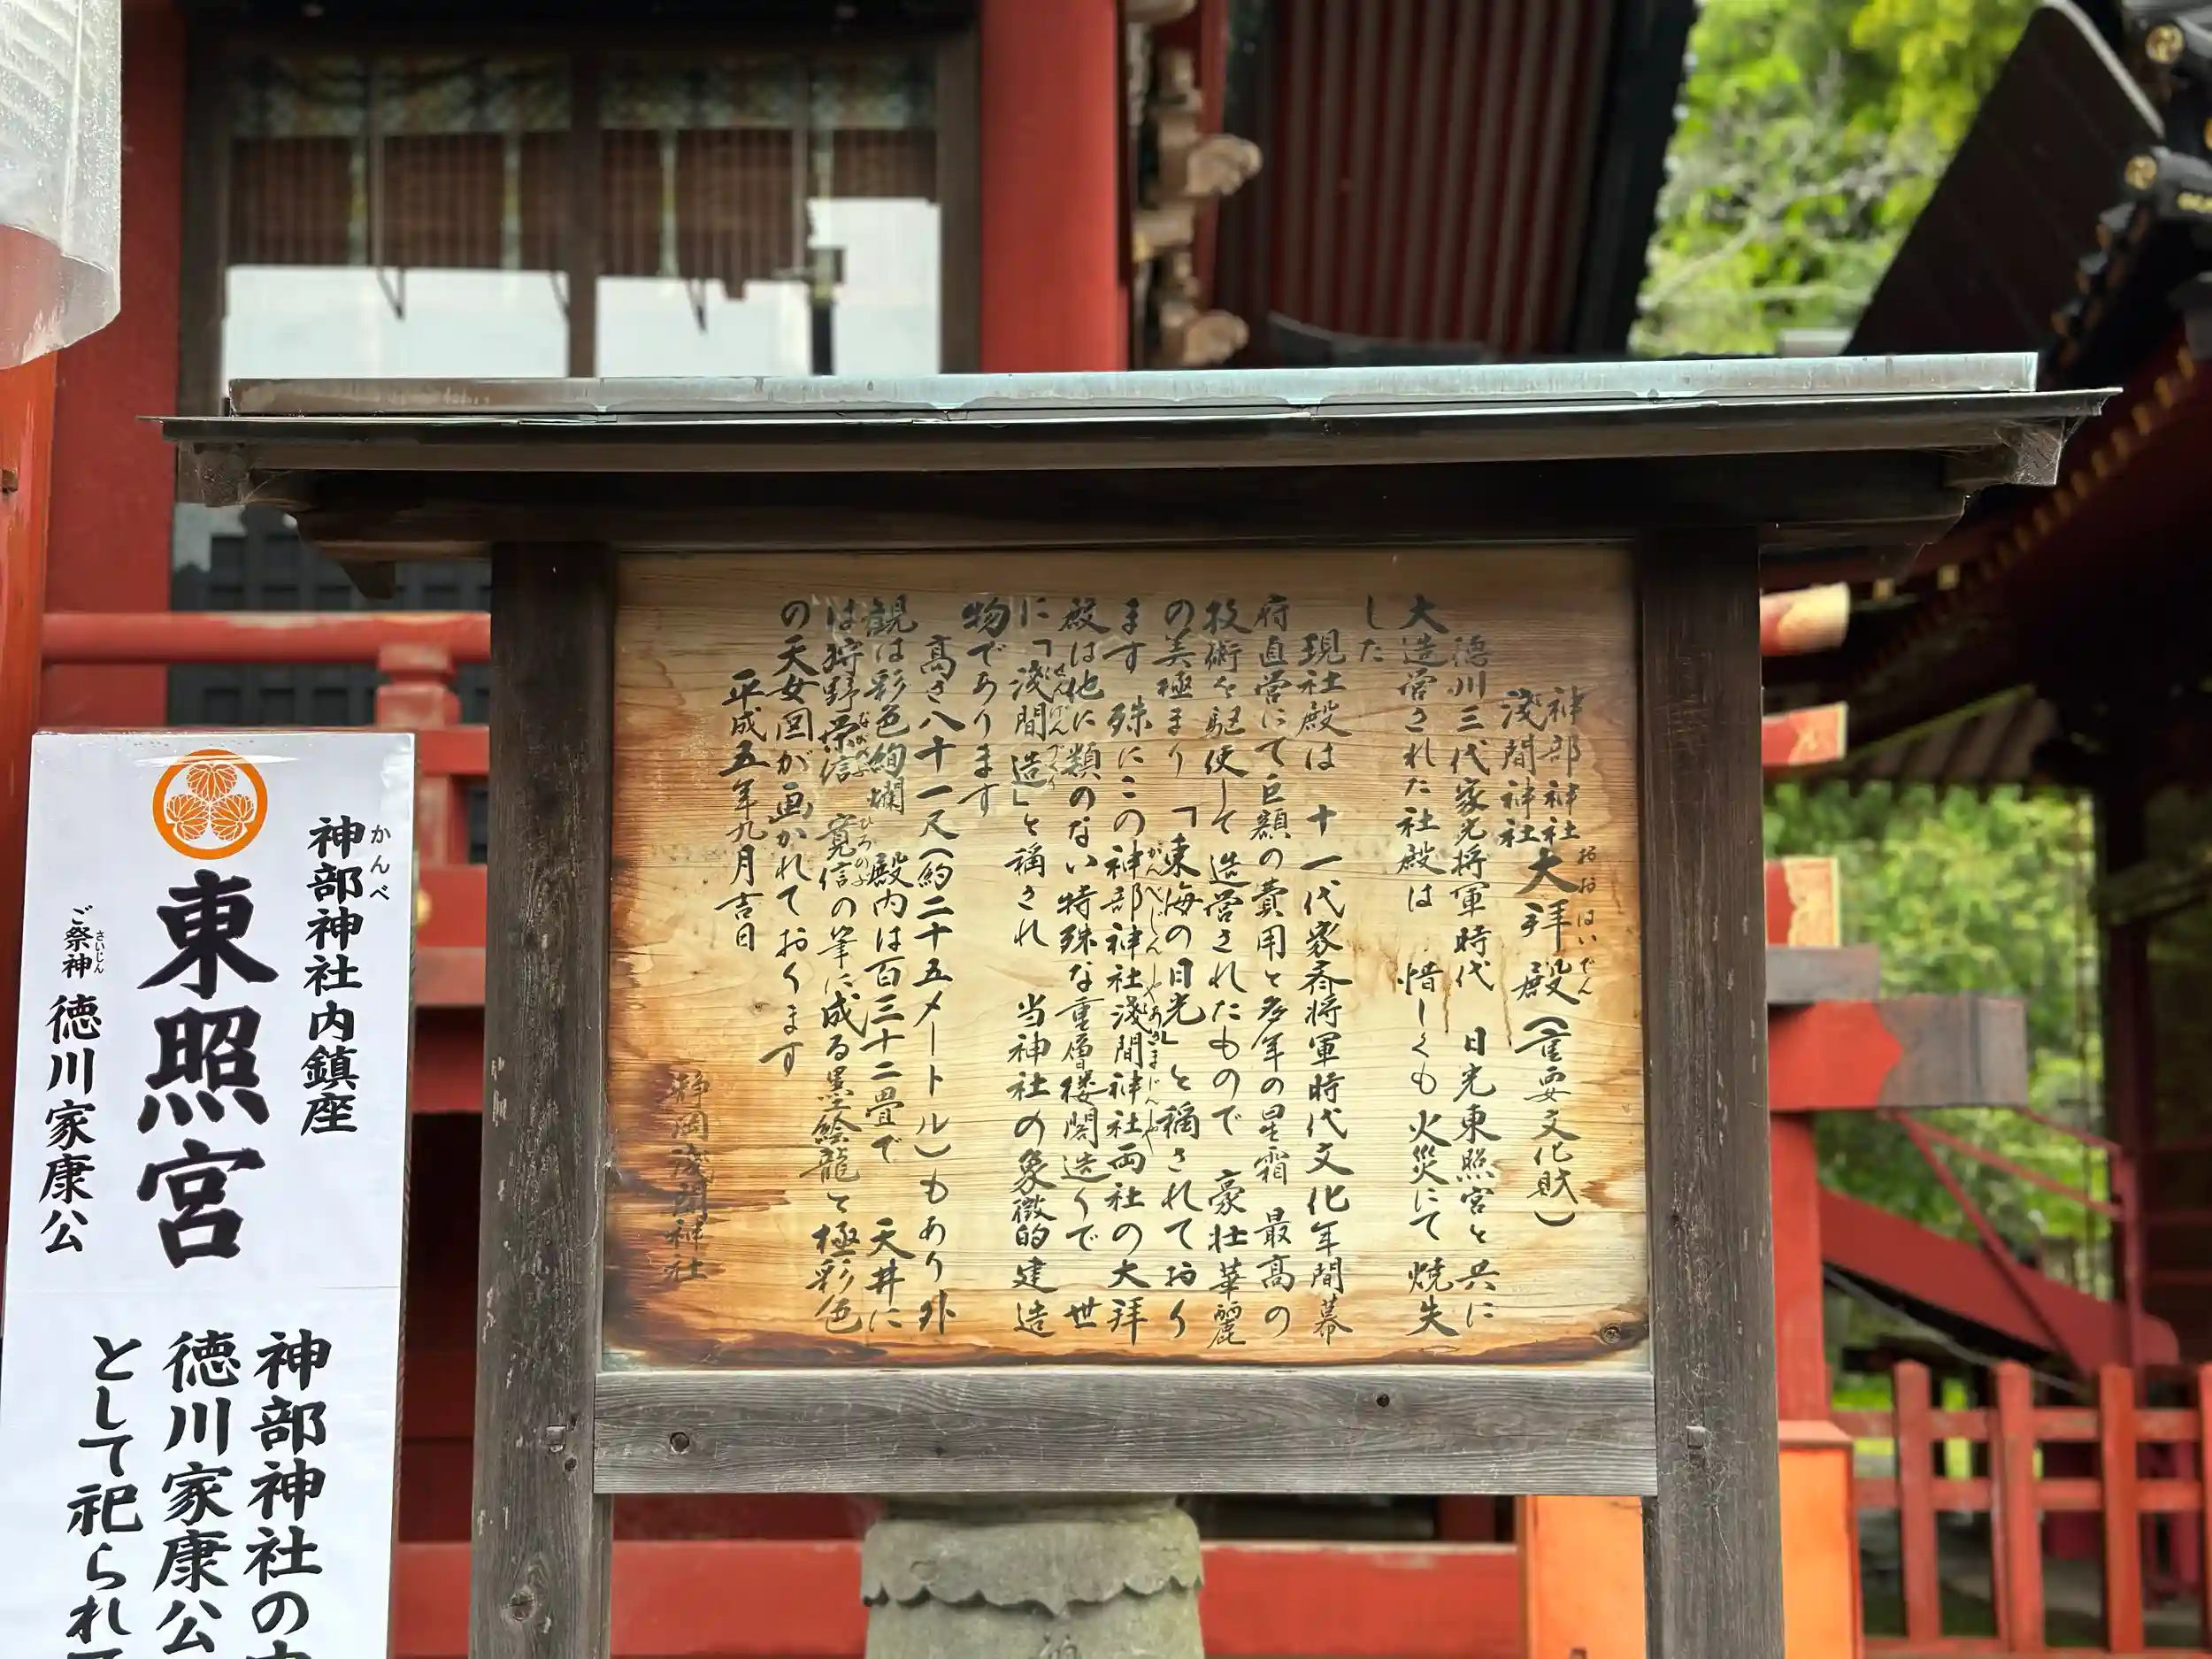 神部神社
浅間神社
大拝殿(重要文化財)
おおはいでん
徳川三代家光将軍時代 日光東照宮と共に
大造営された社殿は 惜しくも火災にて焼失
した
現社殿は 十一代家斉将軍時代文化年間幕
府直営にて巨額の費用と多年の星霜 最高の
技術を駆使して造営されたもので 豪壮華麗
の美極まり「東海の日光」と稱されており
ます 殊にこの神部神社浅間神社両社の大拝
かんべじんじゃあさまじんじゃ
殿は他に類のない特殊な重層楼閣造りで 世
に「浅間造」と稱され 当神社の象徴的建造
せんげんづくり
物であります
高さ八十一尺(約二十五メートル)もあり外
観は彩色絢爛 殿内は百三十二畳で 天井に
は狩野栄信 寛信の筆に成る墨絵龍と極彩色
ながのぶ ひろのぶ
の天女図が画かれております
平成五年九月吉日
静岡浅間神社
神部神社内鎮座
かんべ
東照宮
ご祭神 徳川家康公
さいじん
神部神社の
徳川家康公
として祀られ